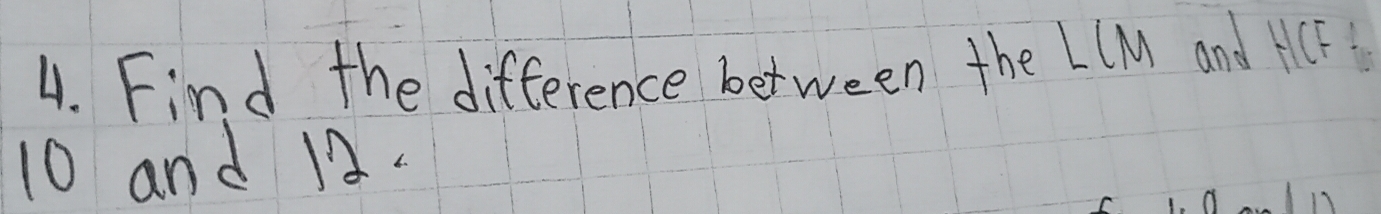 4. Find the difference between the LCM and HCF
10 and 12.